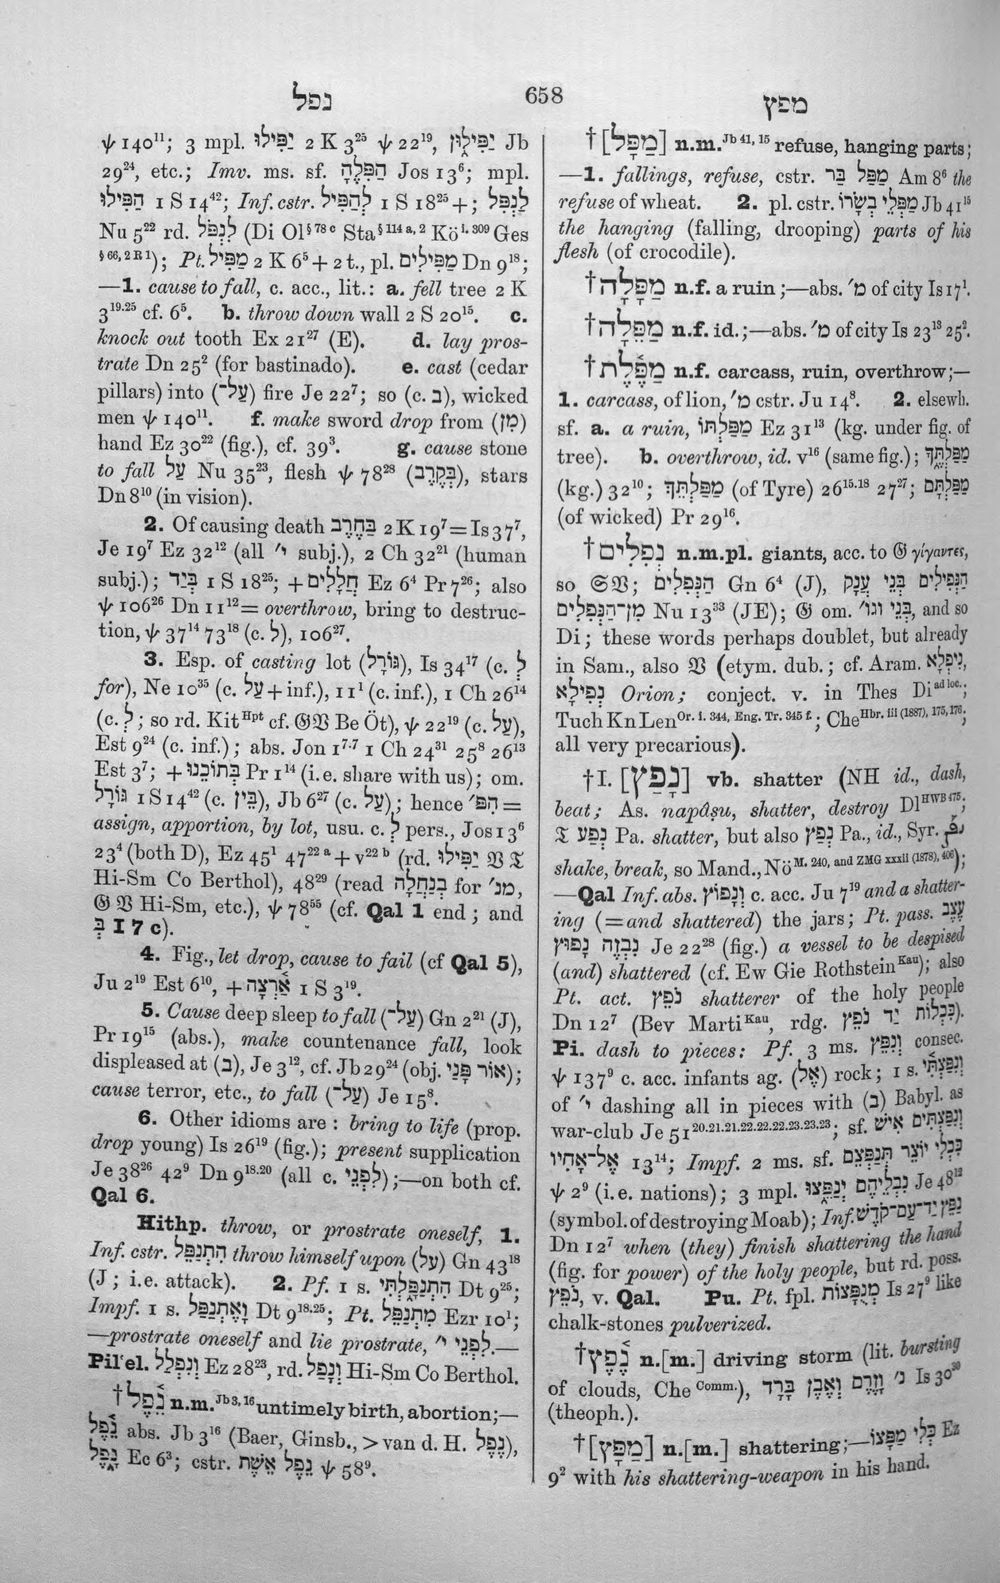 נפל
658
מפץ
ψ 140¹¹; 3 mpl. יַפִּילוּ 2 K 3²⁵ ψ 22¹⁹, יַפִּילוּן Jb
29²⁴, etc.; Imv. ms. sf. הַפִּלֶהָ Jos 13⁶; mpl.
הַפִּילוּ 1 S 14⁴²; Inf. cstr. לְהַפִּיל 1 S 18²⁵ +; לַנְפִּל
Nu 5²² rd. לִנְפֹּל (Di Ol§ 78 c Sta§ 114 a, 2 Kö i. 309 Ges
§ 66, 2 R 1); Pt. מַפִּיל 2 K 6⁵ + 2 t., pl. מַפִּילִים Dn 9¹⁸;
—1. cause to fall, c. acc., lit.: a. fell tree 2 K
3¹⁹·²⁵ cf. 6⁵. b. throw down wall 2 S 20¹⁵. c.
knock out tooth Ex 21²⁷ (E). d. lay pros-
trate Dn 25² (for bastinado). e. cast (cedar
pillars) into (עַל־) fire Je 22⁷; so (c. בְּ), wicked
men ψ 140¹¹. f. make sword drop from (מִן)
hand Ez 30²² (fig.), cf. 39³. g. cause stone
to fall עַל Nu 35²³, flesh ψ 78²⁸ (בְּקֶרֶב), stars
Dn 8¹⁰ (in vision).
2. Of causing death בַּחֶרֶב 2 K 19⁷ = Is 37⁷,
Je 19⁷ Ez 32¹² (all י׳ subj.), 2 Ch 32²¹ (human
subj.); בְּיַד 1 S 18²⁵; + חֲלָלִים Ez 6⁴ Pr 7²⁶; also
ψ 106²⁶ Dn 11¹² = overthrow, bring to destruc-
tion, ψ 37¹⁴ 73¹⁸ (c. לְ), 106²⁷.
3. Esp. of casting lot (גּוֹרָל), Is 34¹⁷ (c. לְ
for), Ne 10³⁵ (c. עַל + inf.), 11¹ (c. inf.), 1 Ch 26¹⁴
(c. לְ; so rd. Kit Hpt cf. 𝔊𝔙 Be Öt), ψ 22¹⁹ (c. עַל),
Est 9²⁴ (c. inf.); abs. Jon 1⁷·⁷ 1 Ch 24³¹ 25⁸ 26¹³
Est 3⁷; + בְּתוֹכֵנוּ Pr 1¹⁴ (i.e. share with us); om.
גּוֹרָל 1 S 14⁴² (c. בֵּין), Jb 6²⁷ (c. עַל); hence הִפּ׳ =
assign, apportion, by lot, usu. c. לְ pers., Jos 13⁶
23⁴ (both D), Ez 45¹ 47²² ᵃ + v²² ᵇ (rd. יַפִּילוּ 𝔙 𝔗
Hi-Sm Co Berthol), 48²⁹ (read בְּנַחֲלָה for מִנּ׳,
𝔊 𝔙 Hi-Sm, etc.), ψ 78⁵⁵ (cf. Qal 1 end; and
בְּ I 7 c).
4. Fig., let drop, cause to fail (cf Qal 5),
Ju 2¹⁹ Est 6¹⁰, + אַרְצָה 1 S 3¹⁹.
5. Cause deep sleep to fall (עַל־) Gn 2²¹ (J),
Pr 19¹⁵ (abs.), make countenance fall, look
displeased at (בְּ), Je 3¹², cf. Jb 29²⁴ (obj. אוֹר פָּנַי);
cause terror, etc., to fall (עַל־) Je 15⁸.
6. Other idioms are : bring to life (prop.
drop young) Is 26¹⁹ (fig.); present supplication
Je 38²⁶ 42⁹ Dn 9¹⁸·²⁰ (all c. לִפְנֵי);—on both cf.
Qal 6.
Hithp. throw, or prostrate oneself, 1.
Inf. cstr. הִתְנַפֵּל throw himself upon (עַל) Gn 43¹⁸
(J; i.e. attack). 2. Pf. 1 s. הִתְנַפָּלְתִּי Dt 9²⁵;
Impf. 1 s. וָאֶתְנַפַּל Dt 9¹⁸·²⁵; Pt. מִתְנַפֵּל Ezr 10¹;
—prostrate oneself and lie prostrate, לִפְנֵי י׳.—
Pilʻel. וְנִפְלַל Ez 28²³, rd. וְנָפַל Hi-Sm Co Berthol.
† נֵ֫פֶל n.m. Jb 3, 16 untimely birth, abortion;—
נֵ֫פֶל abs. Jb 3¹⁶ (Baer, Ginsb., > van d. H. נֶפֶל),
נָפֶל Ec 6³; cstr. נֵפֶל אֵשֶׁת ψ 58⁹.
† [מַפָּל] n.m. Jb 41, 15 refuse, hanging parts;
—1. fallings, refuse, cstr. מַפַּל בַּר Am 8⁶ the
refuse of wheat. 2. pl. cstr. מַפְּלֵי בְשָׂרוֹ Jb 41¹⁵
the hanging (falling, drooping) parts of his
flesh (of crocodile).
† מַפָּלָה n.f. a ruin;—abs. מ׳ of city Is 17¹.
† מַפֵּלָה n.f. id.;—abs. מ׳ of city Is 23¹³ 25².
† מַפֶּ֫לֶת n.f. carcass, ruin, overthrow;—
1. carcass, of lion, מ׳ cstr. Ju 14⁸. 2. elsewh.
sf. a. a ruin, מַפַּלְתּוֹ Ez 31¹³ (kg. under fig. of
tree). b. overthrow, id. v¹⁶ (same fig.); מַפַּלְתֶּךָ
(kg.) 32¹⁰; מַפַּלְתֵּךְ (of Tyre) 26¹⁵·¹⁸ 27²⁷; מַפַּלְתָּם
(of wicked) Pr 29¹⁶.
† נְפִלִים n.m.pl. giants, acc. to 𝔊 γίγαντες,
so 𝔖𝔙; הַנְּפִלִים Gn 6⁴ (J), הַנְּפִילִים בְּנֵי עֲנָק
מִן־הַנְּפִלִים Nu 13³³ (JE); 𝔊 om. בְּנֵי וגו׳, and so
Di; these words perhaps doublet, but already
in Sam., also 𝔙 (etym. dub.; cf. Aram. נִיפְלָא,
נְפִילָא Orion; conject. v. in Thes Di ad loc.;
Tuch Kn Len Or. i. 344, Eng. Tr. 345 f.; Che Hbr. iii (1887), 175, 176;
all very precarious).
† I. [נָפַץ] vb. shatter (NH id., dash,
beat; As. napâṣu, shatter, destroy Dl HWB 475;
𝔗 נְפַע Pa. shatter, but also נְפַץ Pa., id., Syr.
shake, break, so Mand., Nö M. 240, and ZMG xxxii (1878), 406);
—Qal Inf. abs. וְנָפוֹץ c. acc. Ju 7¹⁹ and a shatter-
ing (= and shattered) the jars; Pt. pass. עֶצֶב
נִבְזֶה נָפוּץ Je 22²⁸ (fig.) a vessel to be despised
(and) shattered (cf. Ew Gie Rothstein Kau); also
Pt. act. נֹפֵץ shatterer of the holy people
Dn 12⁷ (Bev Marti Kau, rdg. כִּכְלוֹת יַד נֹפֵץ).
Pi. dash to pieces: Pf. 3 ms. וְנִפֵּץ consec.
ψ 137⁹ c. acc. infants ag. (אֶל) rock; 1 s. וְנִפַּצְתִּי
of י׳ dashing all in pieces with (בְּ) Babyl. as
war-club Je 51²⁰·²¹·²¹·²²·²²·²²·²³·²³·²³; sf. וְנִפַּצְתִּים אִישׁ
אֶל־אָחִיו 13¹⁴; Impf. 2 ms. sf. כִּכְלִי יוֹצֵר תְּנַפְּצֵם
ψ 2⁹ (i.e. nations); 3 mpl. נִבְלֵיהֶם יְנַפֵּצוּ Je 48¹²
(symbol. of destroying Moab); Inf. נַפֵּץ יַד־עַם־קֹדֶשׁ
Dn 12⁷ when (they) finish shattering the hand
(fig. for power) of the holy people, but rd. poss.
נֹפֵץ, v. Qal. Pu. Pt. fpl. מְנֻפָּצוֹת Is 27⁹ like
chalk-stones pulverized.
† נֶ֫פֶץ n.[m.] driving storm (lit. bursting
of clouds, Che Comm.), נ׳ וָזֶרֶם וְאֶבֶן בָּרָד Is 30³⁰
(theoph.).
† [מַפָּץ] n.[m.] shattering;—כְּלִי מַפָּצוֹ Ez
9² with his shattering-weapon in his hand.